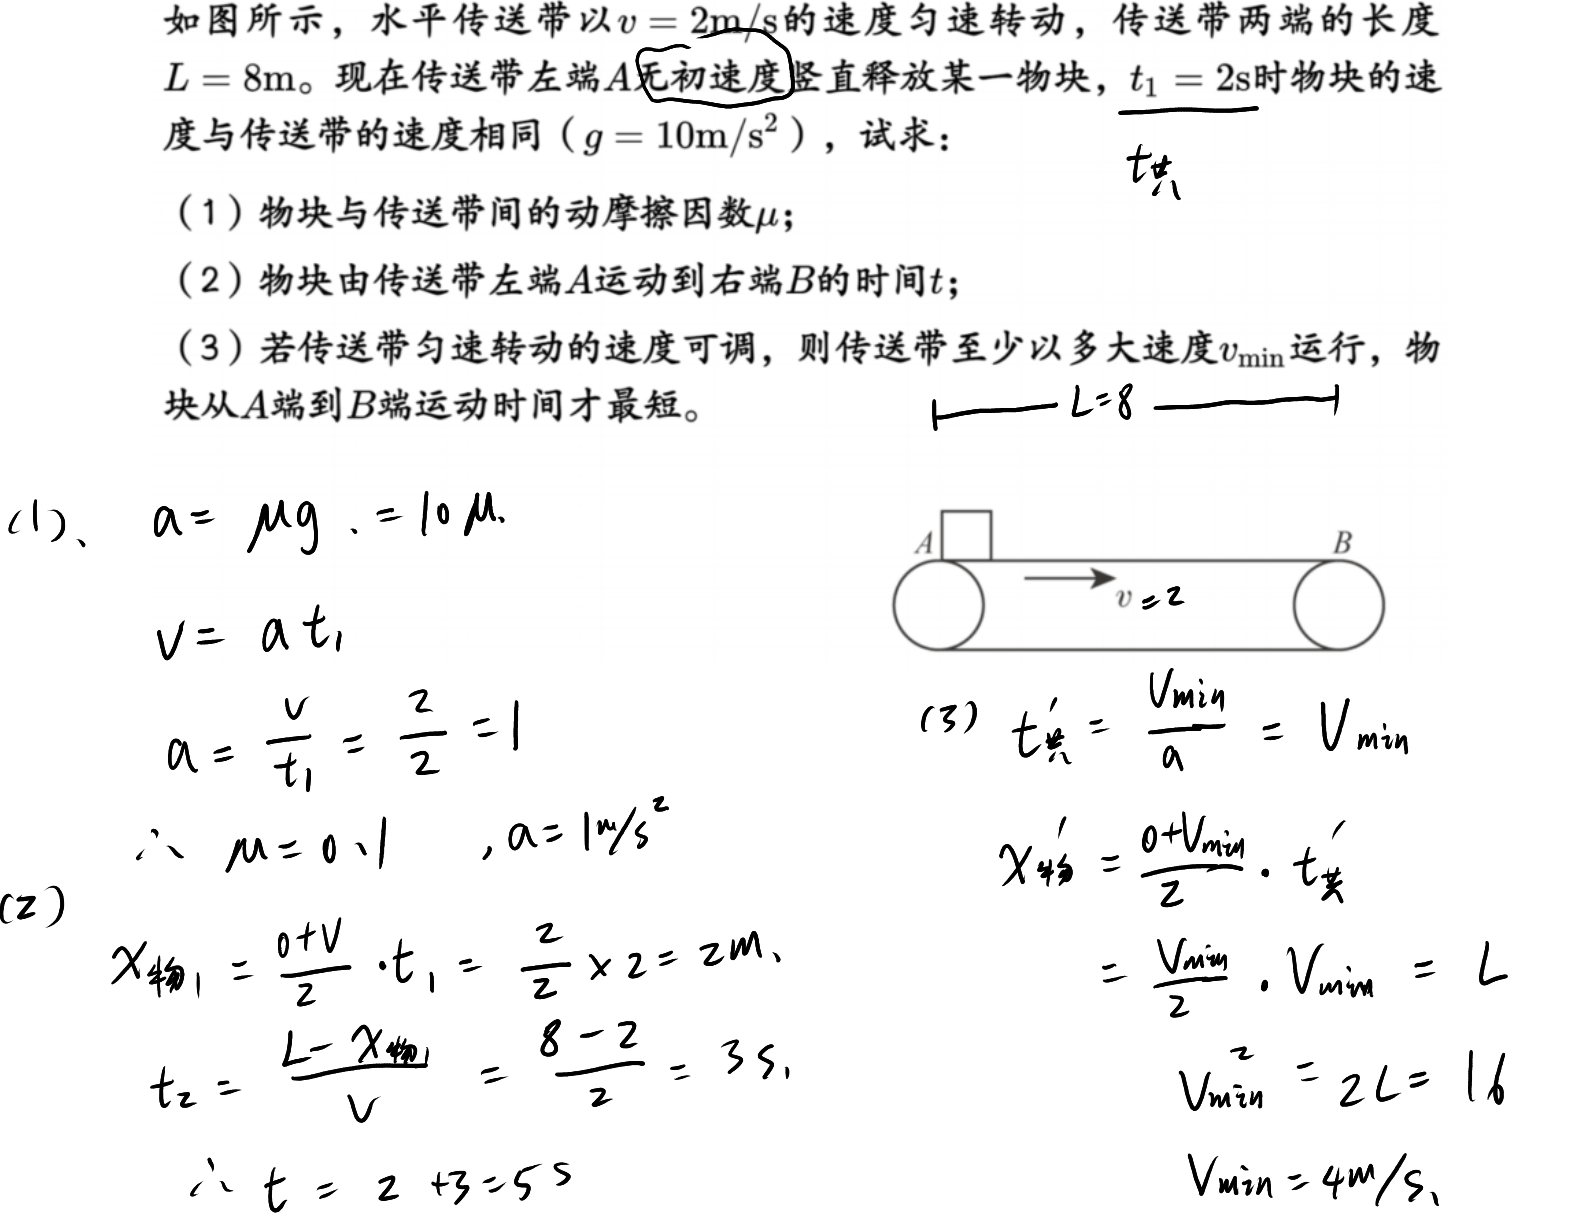 如图所示，水平传送带以v = 2m/s的速度匀速转动，传送带两端的长度
L = 8m。现在传送带左端A无初速度竖直释放某一物块，t₁ = 2s时物块的速
度与传送带的速度相同（g = 10m/s²），试求：
t共
（1）物块与传送带间的动摩擦因数μ；
（2）物块由传送带左端A运动到右端B的时间t；
（3）若传送带匀速转动的速度可调，则传送带至少以多大速度vmin运行，物
块从A端到B端运动时间才最短。
L=8
A B
v =2
(1)、 a = μg . = 10μ.
v = at₁
a = v/t₁ = 2/2 = 1
∴ μ = 0.1 , a = 1m/s²
(2)
x物₁ = (0+v)/2 · t₁ = 2/2 × 2 = 2m、
t₂ = (L - x物₁)/v = (8-2)/2 = 3s、
∴ t = 2 + 3 = 5s
(3) t共' = Vmin/a = Vmin
x物' = (0+Vmin)/2 · t共'
= Vmin/2 · Vmin = L
Vmin² = 2L = 16
Vmin = 4m/s、